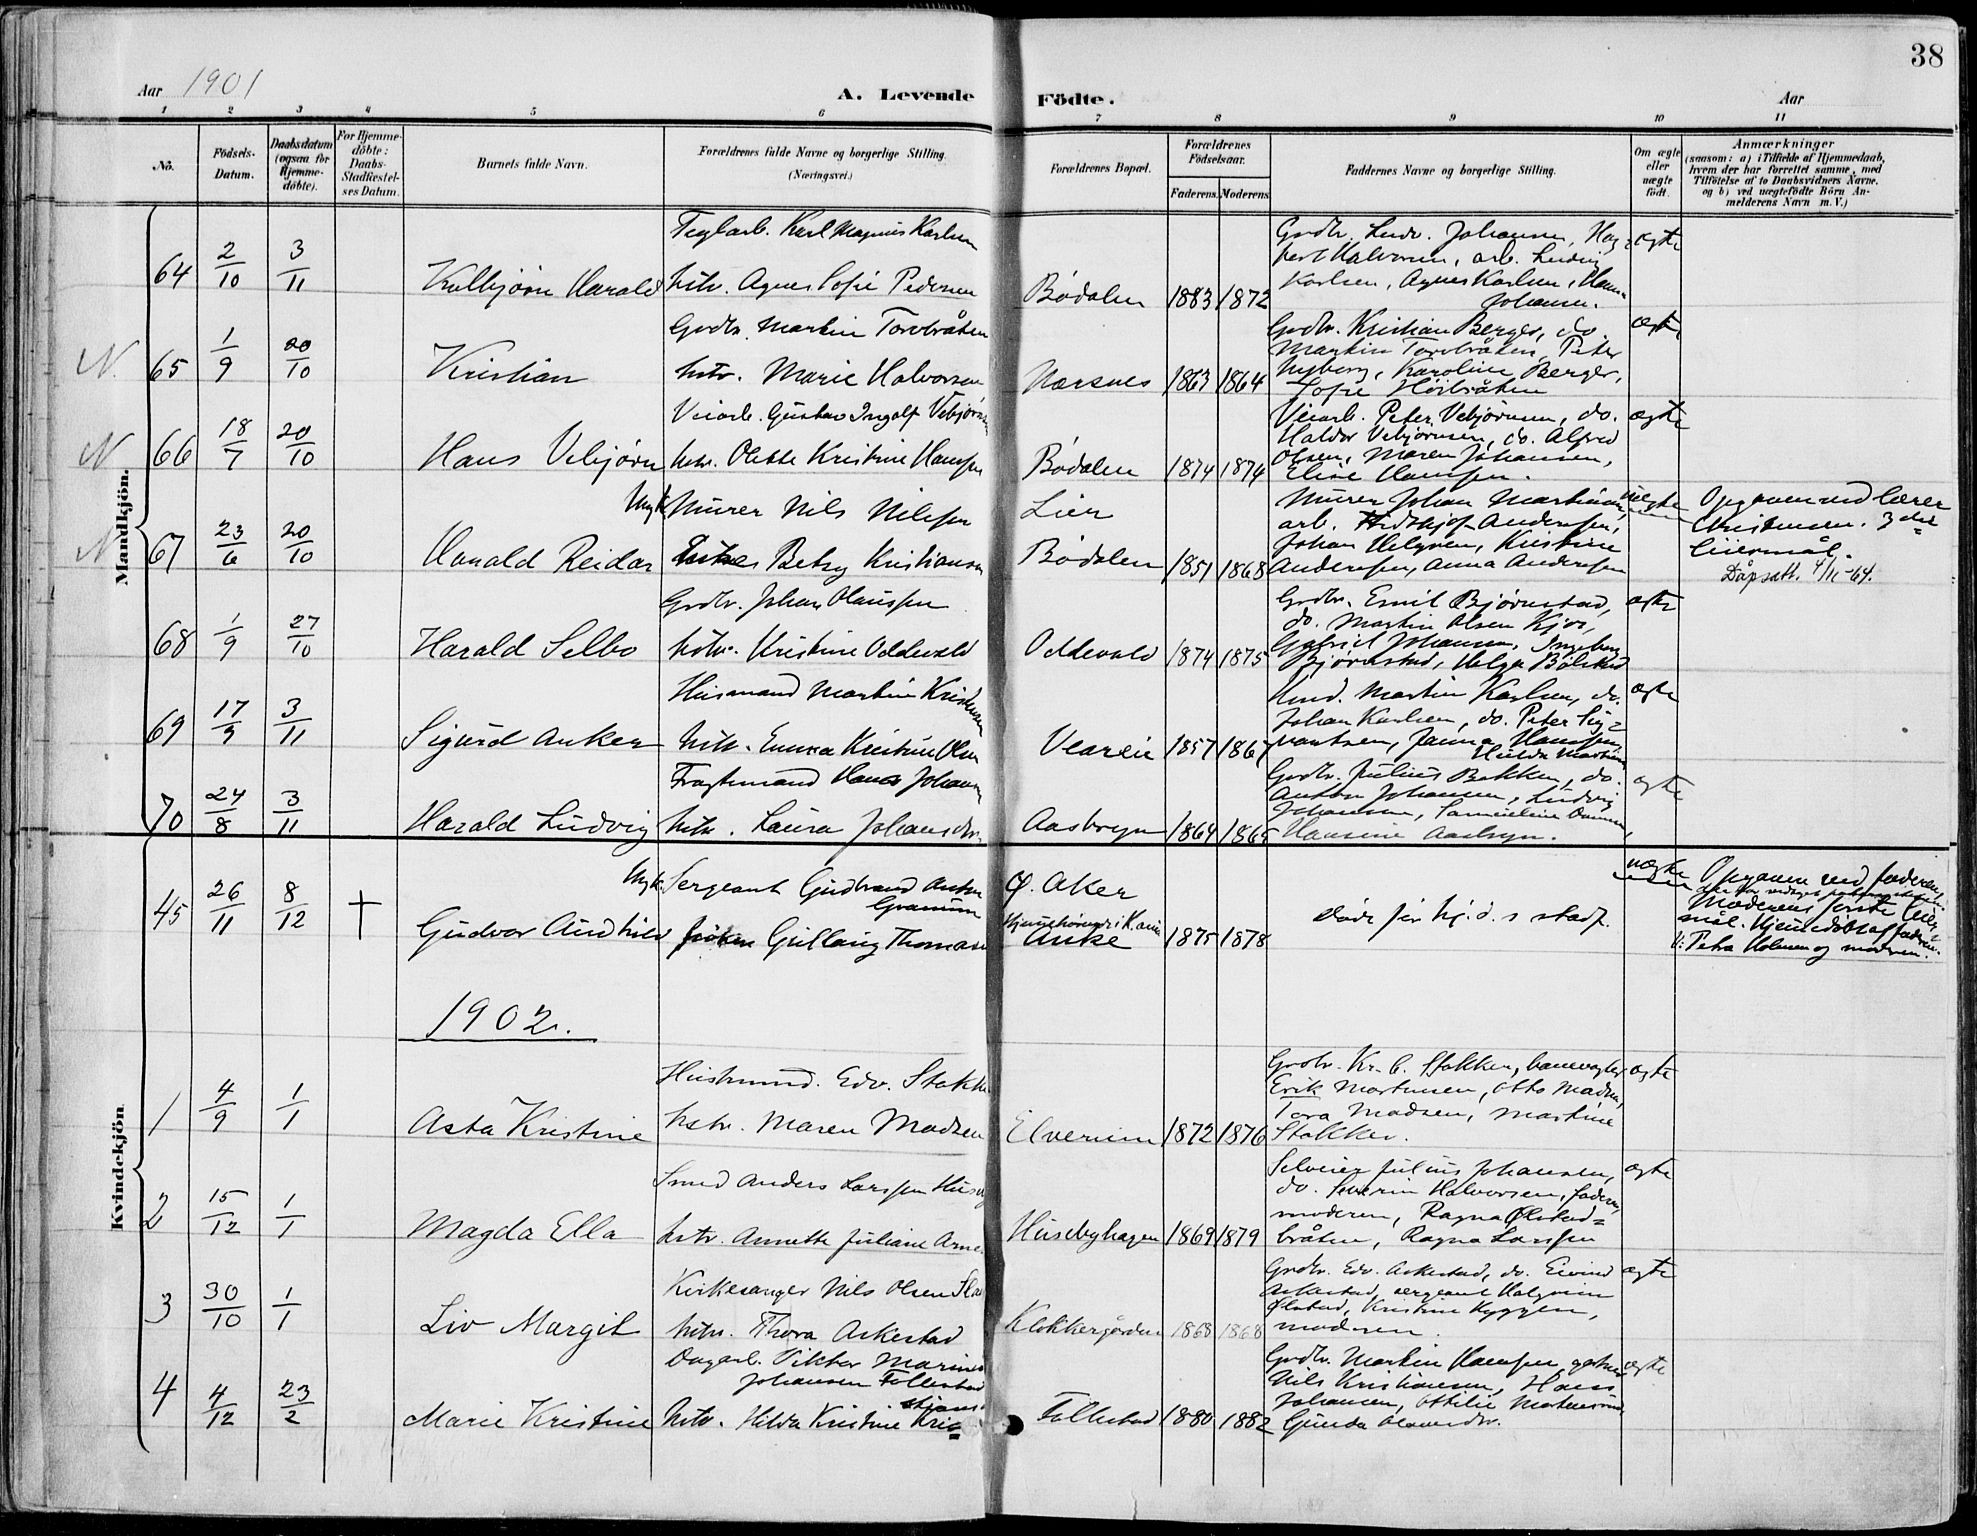 38
Aar 1901
A. Levende Födte.
Aar
1 2 3 4 5 6 7 8 9 10 11
No.
Födsels-Datum.
Daabsdatum (ogsaa for Hjemme-döbte).
For Hjemme-döbte: Daabs-Stadfæstel-ses Datum.
Barnets fulde Navn.
Forældrenes fulde Navne og borgerlige Stilling.
(Næringsvei.)
Forældrenes Bopæl.
Forældrenes Födselsaar.
Faderens. Moderens.
Faddernes Navne og borgerlige Stilling.
Om ægte eller uægte födt.
Anmærkninger
(saasom: a) i Tilfælde af Hjemmedaab,
hvem der har forrettet samme, med
Tilföielse af to Daabsvidners Navne,
og b) ved uægtefödte Börn An-
melderens Navn m. V.)
Mandkjön.
64 2/10 3/11 Kolbjørn Harald
Teglarb. Karl Magnus Karlsen
hstr. Agnes Sofie Pedersen
Bødalen 1883 1872
Grdbr. Ludv. Johansen,
Halvorsen, arb. Ludvig
Karlsen, Agnes Karlsen,
Johansen.
ægte
N. 65 1/9 20/10 Kristian
Grdbr. Martin Torvbråten
hstr. Marie Halvorsen
Nærsnes 1863 1864
Grdbr. Kristian Berger, do.
Martin Torvbråten, Peter
Nyborg, Karoline Berger,
Sofie Høibråten
ægte
N 66 18/7 20/10 Hans Vebjørn
Veiarb. Gustav Ingolf Vebjørnsen
hstr. Olette Kristine Hansen
Bødalen 1874 1874
Veiarb. Peter Vebjørnsen, do.
Haldor Vebjørnsen, do. Alfred
Olsen, Maren Johansen,
Elise Hansen.
ægte
N 67 23/6 20/10 Harald Reidar
Ungk. Murer Nils Nilsen
Betsy Kristiansen
Lier
Bødalen 1851 1868
Murer Johan Martinsen,
arb. Andersen,
Johan Helgesen, Kristine
Andersen, Anna Andersen
uægte
Opgaven ved lærer
Christensen. 3die
leiermål.
Dåpsatt. 4/11-64.
68 1/9 27/10 Harald Selbo
Grdbr. Johan Olaussen
hstr. Kristine Oddevald
Oddevald 1874 1875
Grdbr. Emil Bjørnstad,
do. Martin Olsen Kjos,
Gabriel Johansen, Ingeborg
Bjørnstad, Helga Bølstad
ægte
69 17/9 3/11 Sigurd Anker
Husmand Martin Kristensen
hstr. Emma Kristine Olsen
1857 1867
Hmd. Martin Karlsen, do.
Johan Karlsen, do. Peter Sig-
vartsen, Hansen,
Hulda Martinsen
ægte
70 24/8 3/11 Harald Ludvig
Fragtemand Hans Johansen
hstr. Laura Johansdtr.
Aasbryn 1864 1865
Grdbr. Julius Bakken, do.
Anton Johansen, Ludvig
Johansen,
Hansine Aasbryn.
ægte
Kvindekjön.
45 26/11 8/12 † Gudvor Audhild
Ungk. Sergeant Gudbrand Anton
Granum
frøken Gullaug Thomasen
Ø. Aker
Aske 1875 1878
døde før hj. d. s stadf.
uægte
Opgaven ved faderen,
Moderens første leier-
mål. Hjemmedøbt af faderen.
V: Petra Holmen og moderen.
1902.
1 4/9 1/1 Asta Kristine
Husmand. Edv. Stokker
hstr. Maren Madsen
Elverum 1872 1876
Grdbr. Kr. C. Stokker, banevogter
Erik Mortensen, Otto Madsen,
Tora Madsen, Martine
Stokker.
ægte
2 15/12 1/1 Magda Ella
Smed Anders Larssen Huseby
hstr. Annette Juliane
Husebyhagen 1869 1879
Selveier Julius Johansen,
do. Severin Halvorsen, faderen,
moderen, Ragna Ølstad-
bråten, Ragna Larssen
ægte
3 30/10 1/1 Liv Margit
Kirkesanger Nils Olsen
hstr. Thora Askestad
Klokkergården 1868 1868
Grdbr. Edv. Askestad, do. Eivind
Askestad, sergeant Halgrim
Ølstad, Kristine Hyggen,
moderen.
ægte
4 4/12 23/2 Marie Kristine
Dagarb. Viktor Marinus
Johansen Follestad
hstr. Hilda Kristine Kris-
tians
Follestad 1880 1882
Grdbr. Martin Hansen,
Nils Kristiansen, Hans
Johansen, Ottilie
Gunda
ægte